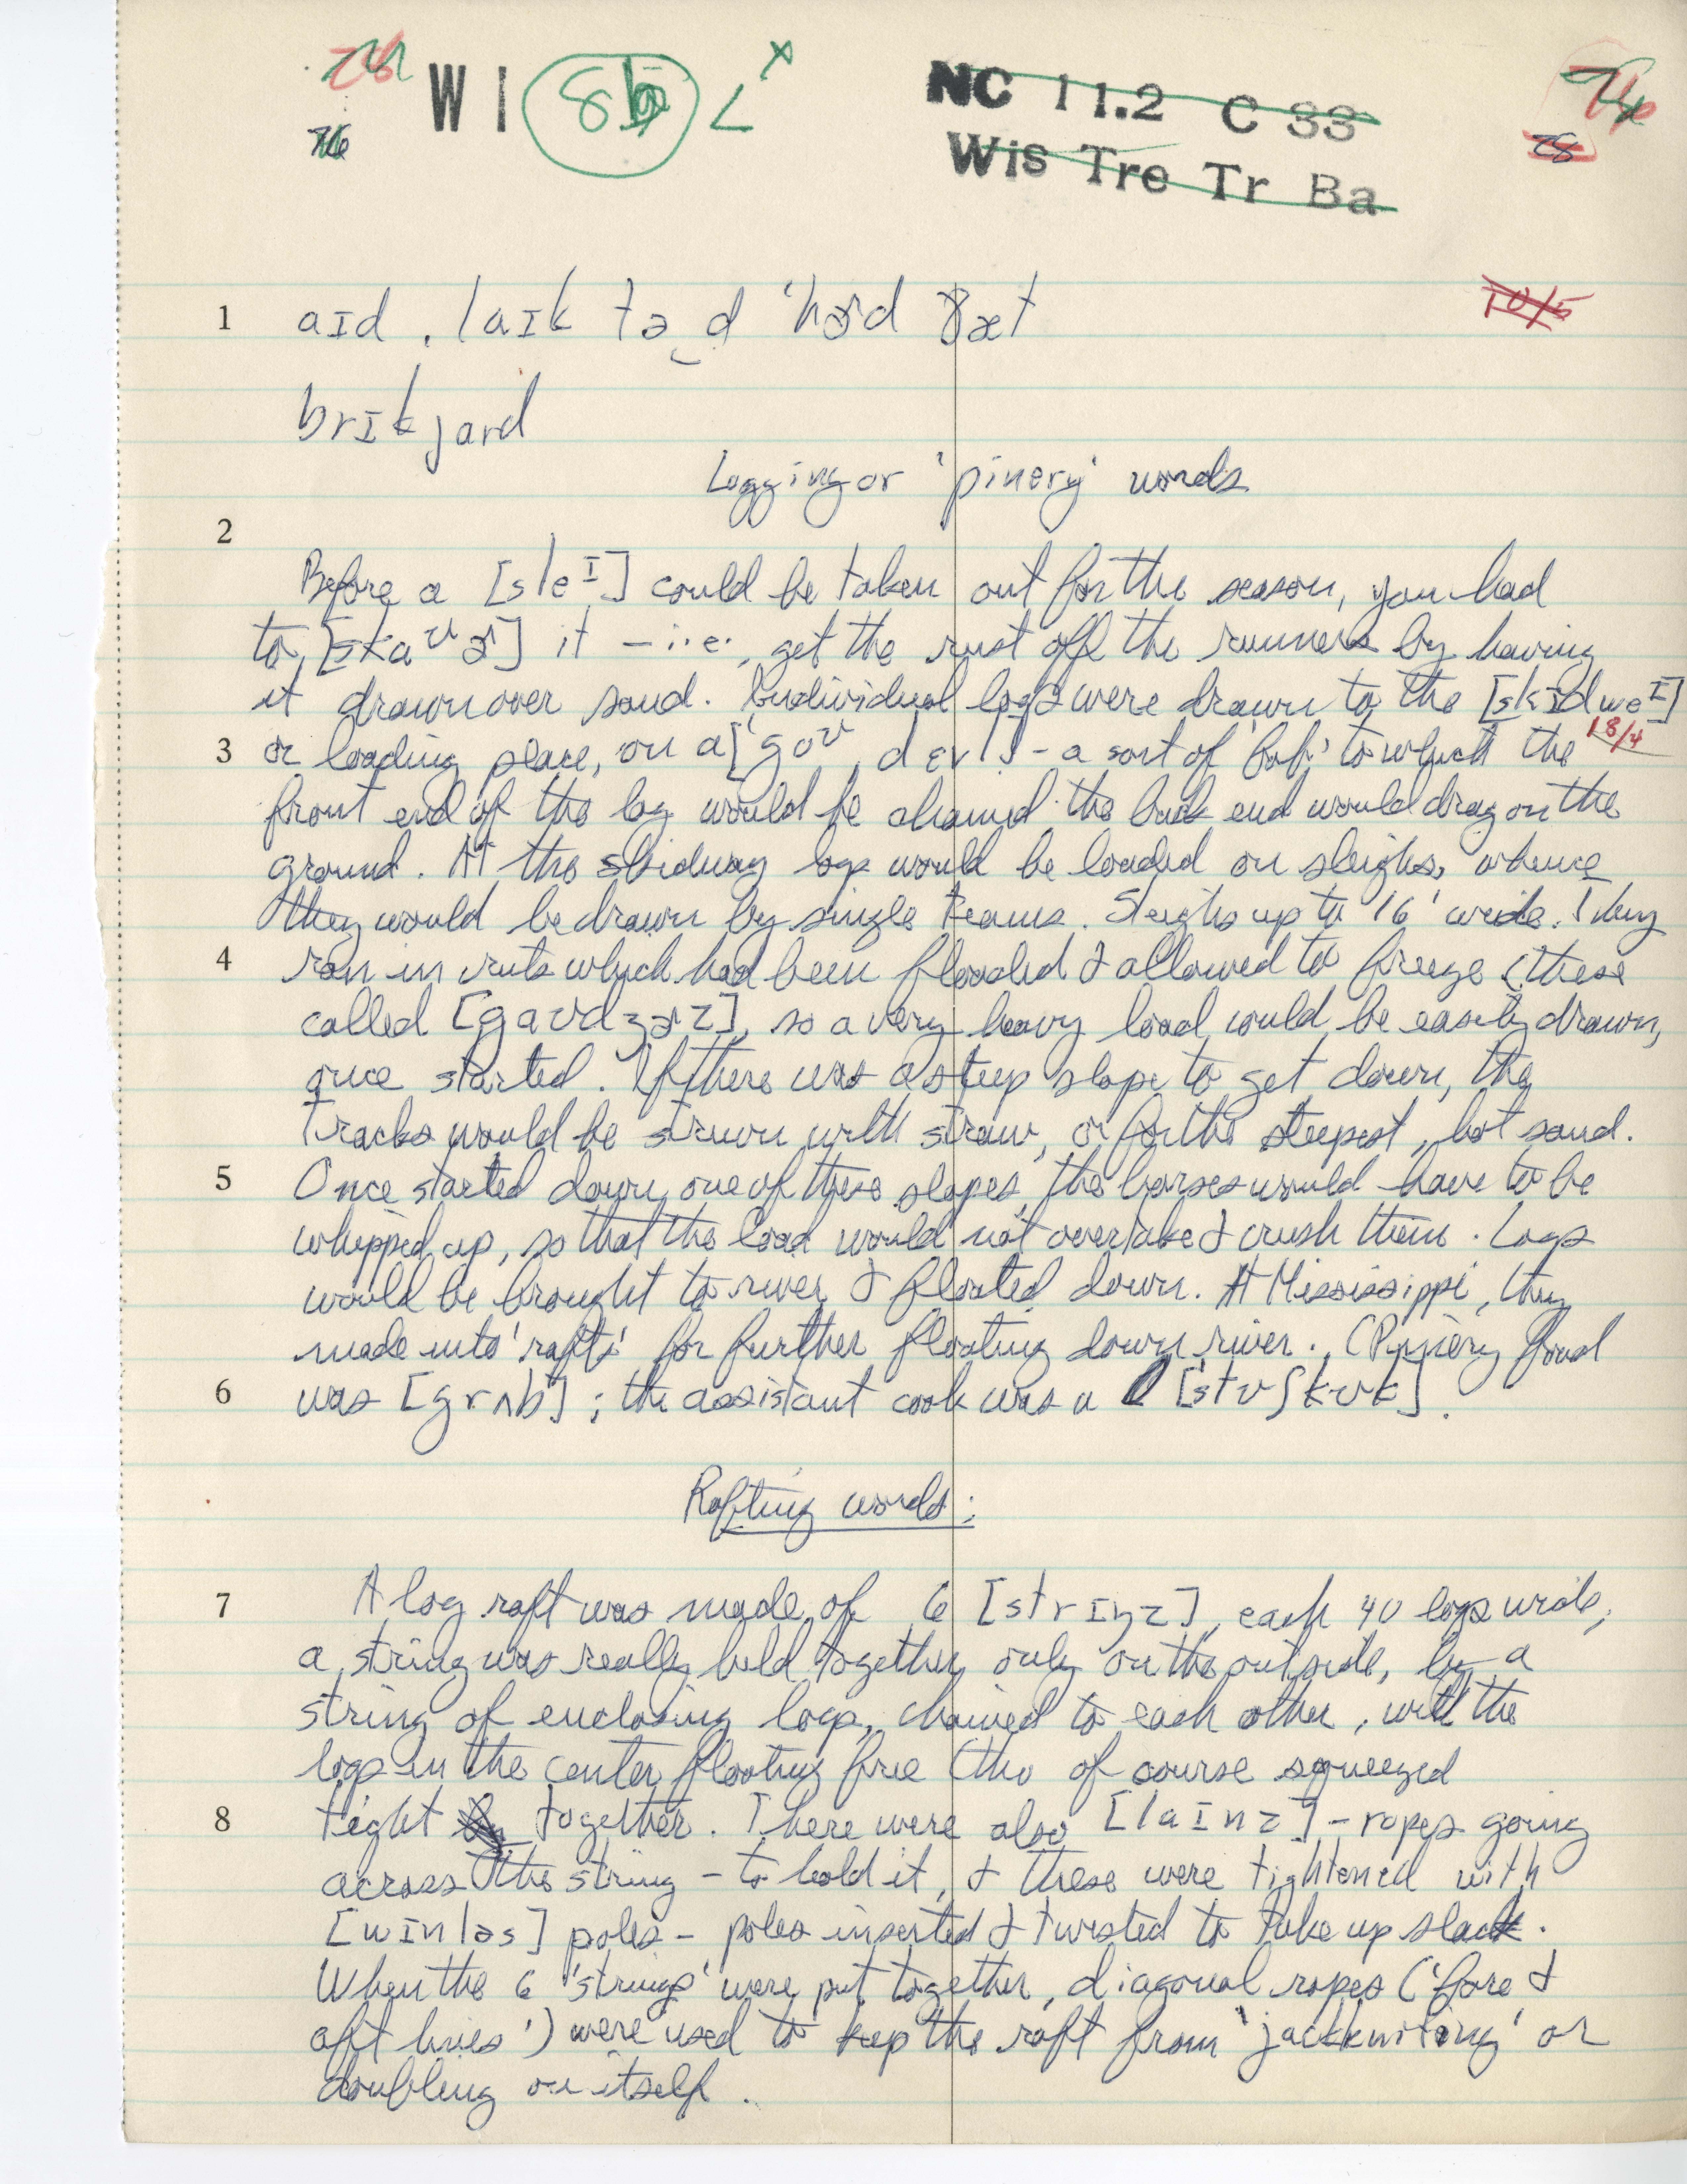 W I 8b L x
NC 11.2 C 33
Wis Tre Tr Ba
76
28
10/5
1 aɪd ˌlaɪk tə d ˈhɝd ðæt
brɪkjard
Logging or 'pinery' words
2
Before a [sleɪ] could be taken out for the season, you had
to [skaʊɚ] it – i.e., get the rust off the runners by having
it drawn over sand. Individual logs were drawn to the [skɪdweɪ]
18/4
3 or loading place, on a [ˈgoʊˌdɛvl] – a sort of 'bob' to which the
front end of the log would be chained the back end would drag on the
ground. At the skidway logs would be loaded on sleighs, whence
they would be drawn by single teams. Sleighs up to 16' wide. They
4 ran in ruts which had been flooded & allowed to freeze (these
called [gaʊdʒɚz], so a very heavy load could be easily drawn,
once started. If there was a steep slope to get down, the
tracks would be strewn with straw, or for the steepest, hot sand.
5 Once started down one of these slopes, the horses would have to be
whipped up, so that the load would not overtake & crush them. Logs
would be brought to river & floated down. At Mississippi, they
made into 'rafts' for further floating down river. (Pinery food
6 was [grʌb]; the assistant cook was a [ˈkʊk].
Rafting words:
7 A log raft was made of 6 [strɪŋz], each 40 logs wide;
a string was really held together only on the outside, by a
string of enclosing logs, chained to each other, with the
logs in the center floating free (tho of course squeezed
8 tight together. There were also [laɪnz] – ropes going
across the string – to hold it, & these were tightened with
[wɪnləs] poles – poles inserted & twisted to take up slack.
When the 6 'strings' were put together, diagonal ropes ('fore &
aft lines') were used to keep the raft from 'jackknifing' or
doubling on itself.